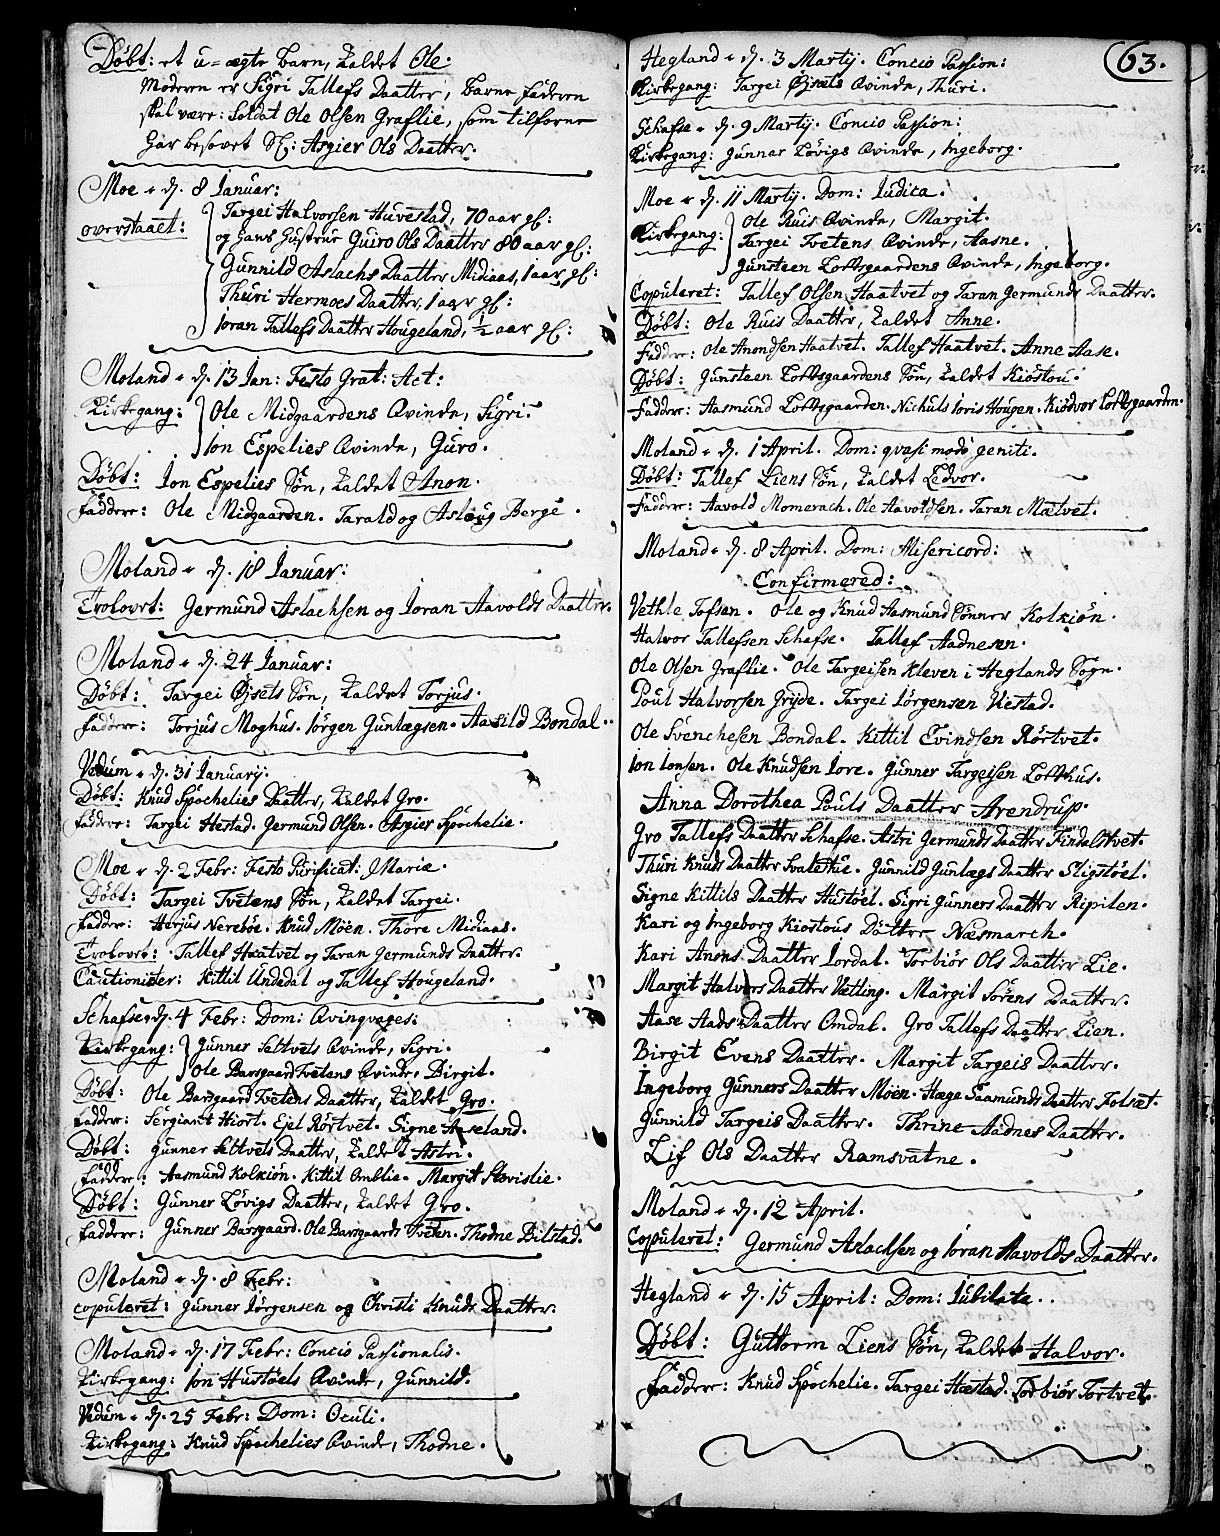 Døbt: et u-ægte Barn, kaldet Ole.
Moderen er Sigri Tallefs Daatter, Barne faderen
skal være: Soldat Ole Olsen Graflie, som tilforne
har besovet Asgier Ols Daatter.
Moe d. 8 Januar:
overstaaet: Targei Halvorsen Huvestad, 70 aar gl:
og hans Hustrue Guiro Ols Daatter 80 aar gl:
Gunnild Aslachs Daatter Midiaas, 1 aar gl:
Thuri Hermoes Daatter, 1 aar gl:
Joran Tallefs Daatter Hougeland, ½ aar gl:
Moland d. 13 Jan: Festo Grat: Act:
Kirkegang: Ole Midgaardens Qvinde, Sigri.
Jon Espelies Qvinde, Guro.
Døbt: Jon Espelies Søn, kaldet Anon.
Faddere: Ole Midgaarden. Tarald og Aslaug Berge.
Moland d. 18 Januar:
Trolovet: Germund Aslachsen og Joran Aavolds Daatter.
Moland d. 24 Januar:
Døbt: Targei Øjsets Søn, kaldet Torjus.
Faddere: Torjus Moghus. Jørgen Gunlægsen. Aasild Bondal.
Vedum d. 31 Januarij.
Døbt: Knud Spochelies Daatter, kaldet Gro.
Faddere: Targei Hestad. Germund Olsen. Asgier Spochelie.
Moe d. 2 Febr: Festo Purificat: Mariæ.
Døbt: Targei Tvetens Søn, kaldet Targei.
Faddere: Herjus Nereböe. Knud Möen. Thore Midiaas.
Trolovet: Tallef Haatvet og Taran Germunds Daatter.
Cautionister: Kittil Undedal og Tallef Hougeland.
Schafse d. 4 Febr: Dom: Qvinqvages:
Kirkegang: Gunner Saltvets Qvinde, Sigri.
Ole Barsgaard Tvetens Qvinde, Birgit.
Døbt: Ole Barsgaard Tvetens Daatter, kaldet Gro.
Faddere: Sergiant Hiort. Ejel Rörtvet. Signe Aaseland.
Døbt: Gunner Saltvets Daatter, kaldet Astri.
Faddere: Aasmund Kolkiön. Kittil Omblie. Margit Stovislie.
Døbt: Gunner Lövigs Daatter, kaldet Gro.
Faddere: Gunner Barsgaard. Ole Barsgaards Tveten. Thodne Bilstad.
Moland d. 8 Febr:
copuleret: Gunner Jörgensen og Christi Knuds Daatter.
Moland d. 17 Febr: Concio Passionalis.
Kirkegang: Jon Hustöels Qvinde, Gunnild.
Vedum d. 25 Febr: Dom: Oculi.
Kirkegang: Knud Spochelies Qvinde, Thodne.
63.
Hegland d. 3 Martij. Concio Passion:
Kirkegang: Targei Øjsets Qvinde, Thuri.
Schafse d. 9 Martij. Concio Passion:
Kirkegang: Gunnar Lövigs Qvinde, Ingeborg.
Moe d. 11 Martij. Dom: Judica.
Kirkegang: Ole Ruis Qvinde, Margit.
Targei Tvetens Qvinde, Aasne.
Gunsteen Loftsgaardens Qvinde, Ingeborg.
Copuleret: Tallef Olsen Haatvet og Taran Germunds Daatter.
Døbt: Ole Ruis Daatter, kaldet Anne.
Faddere: Ole Anondsen Haatvet. Tallef Haatvet. Anne Aase.
Døbt: Gunsteen Loftsgaardens Søn, kaldet Kiöstou.
Faddere: Aasmund Loftsgaarden. Nichuls Joris Hougen. Kiödvor Loftsgaarden.
Moland d. 1 April. Dom: qvasi modo geniti.
Døbt: Tallef Liens Søn, kaldet Ledvor.
Faddere: Aavold Momerach. Ole Aavoldsen. Taran Mætvet.
Moland d. 8 April. Dom: Misericord:
Confirmered:
Vethle Tofsen. Ole og Knud Aasmund Sönner Kolkiön.
Halvor Tallefsen Schafse. Tallef Aadnesen.
Ole Olsen Graflie. Ole Targeisen Kleven i Heglands Sogn.
Poul Halvorsen Gryde. Targei Jörgensen Vestad.
Ole Svenchesen Bondal. Kittil Evindsen Rörtvet.
Jon Jonsen. Ole Knudsen Jore. Gunner Targeisen Lofthus.
Anna Dorothea Pouls Daatter Arendrup.
Gro Tallefs Daatter Schafse. Astri Germunds Daatter Findalstvet.
Thuri Knuds Daatter Svaletue. Gunnild Gunlægs Daatter Sligstöel.
Signe Kittils Daatter Hustöel. Sigri Gunners Daatter Ripilen.
Kari og Ingeborg Kiostous Döttre Næsmarch.
Kari Anons Daatter Jordal. Torbiör Ols Daatter Lie.
Margit Halvors Daatter Vetting. Margit Sörens Daatter.
Aase Aads Daatter Omdal. Gro Tallefs Daatter Lien.
Birgit Evens Daatter. Margit Targeis Daatter.
Ingeborg Gunners Daatter Möen. Hæge Saamunds Daatter Folset.
Gunnild Targeis Daatter. Thrine Aadnes Daatter.
Lif Ols Daatter Ramsvatne.
Moland d. 12 April.
Copuleret: Germund Aslachsen og Joran Aavolds Daatter.
Hegland d. 15 April: Dom: Jubilate.
Døbt: Guttorm Liens Søn, kaldet Halvor.
Faddere: Knud Spochelie. Targei Hæstad. Torbiör Tortvet.